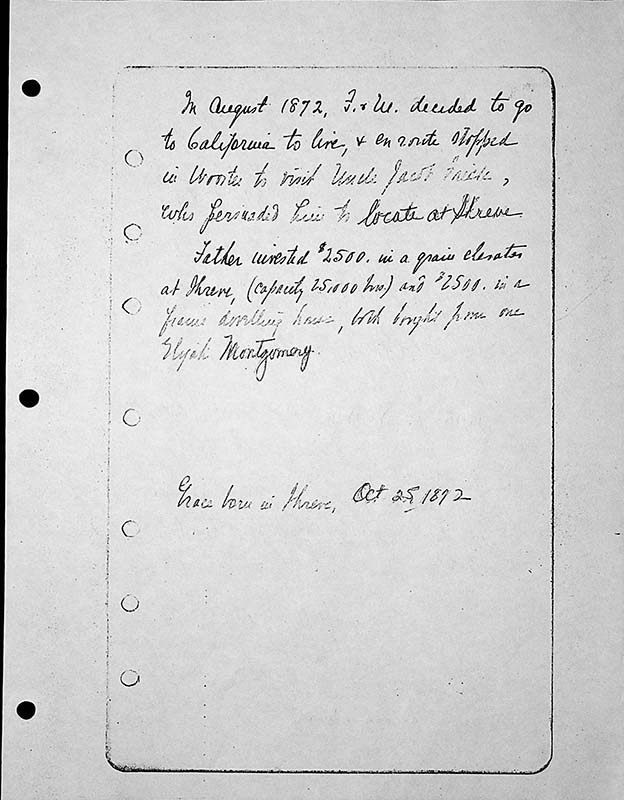 In August 1872, F. & M. decided to go
to California to live, & en route stopped
in Wooster to visit Uncle Jacob
who persuaded him to locate at Shreve
Father invested $2500. in a grain elevator
at Shreve, (capacity 25,000 bus) and $2500. in a
frame dwelling house, both bought from one
Elijah Montgomery.
Grace born in Shreve, Oct 25, 1872